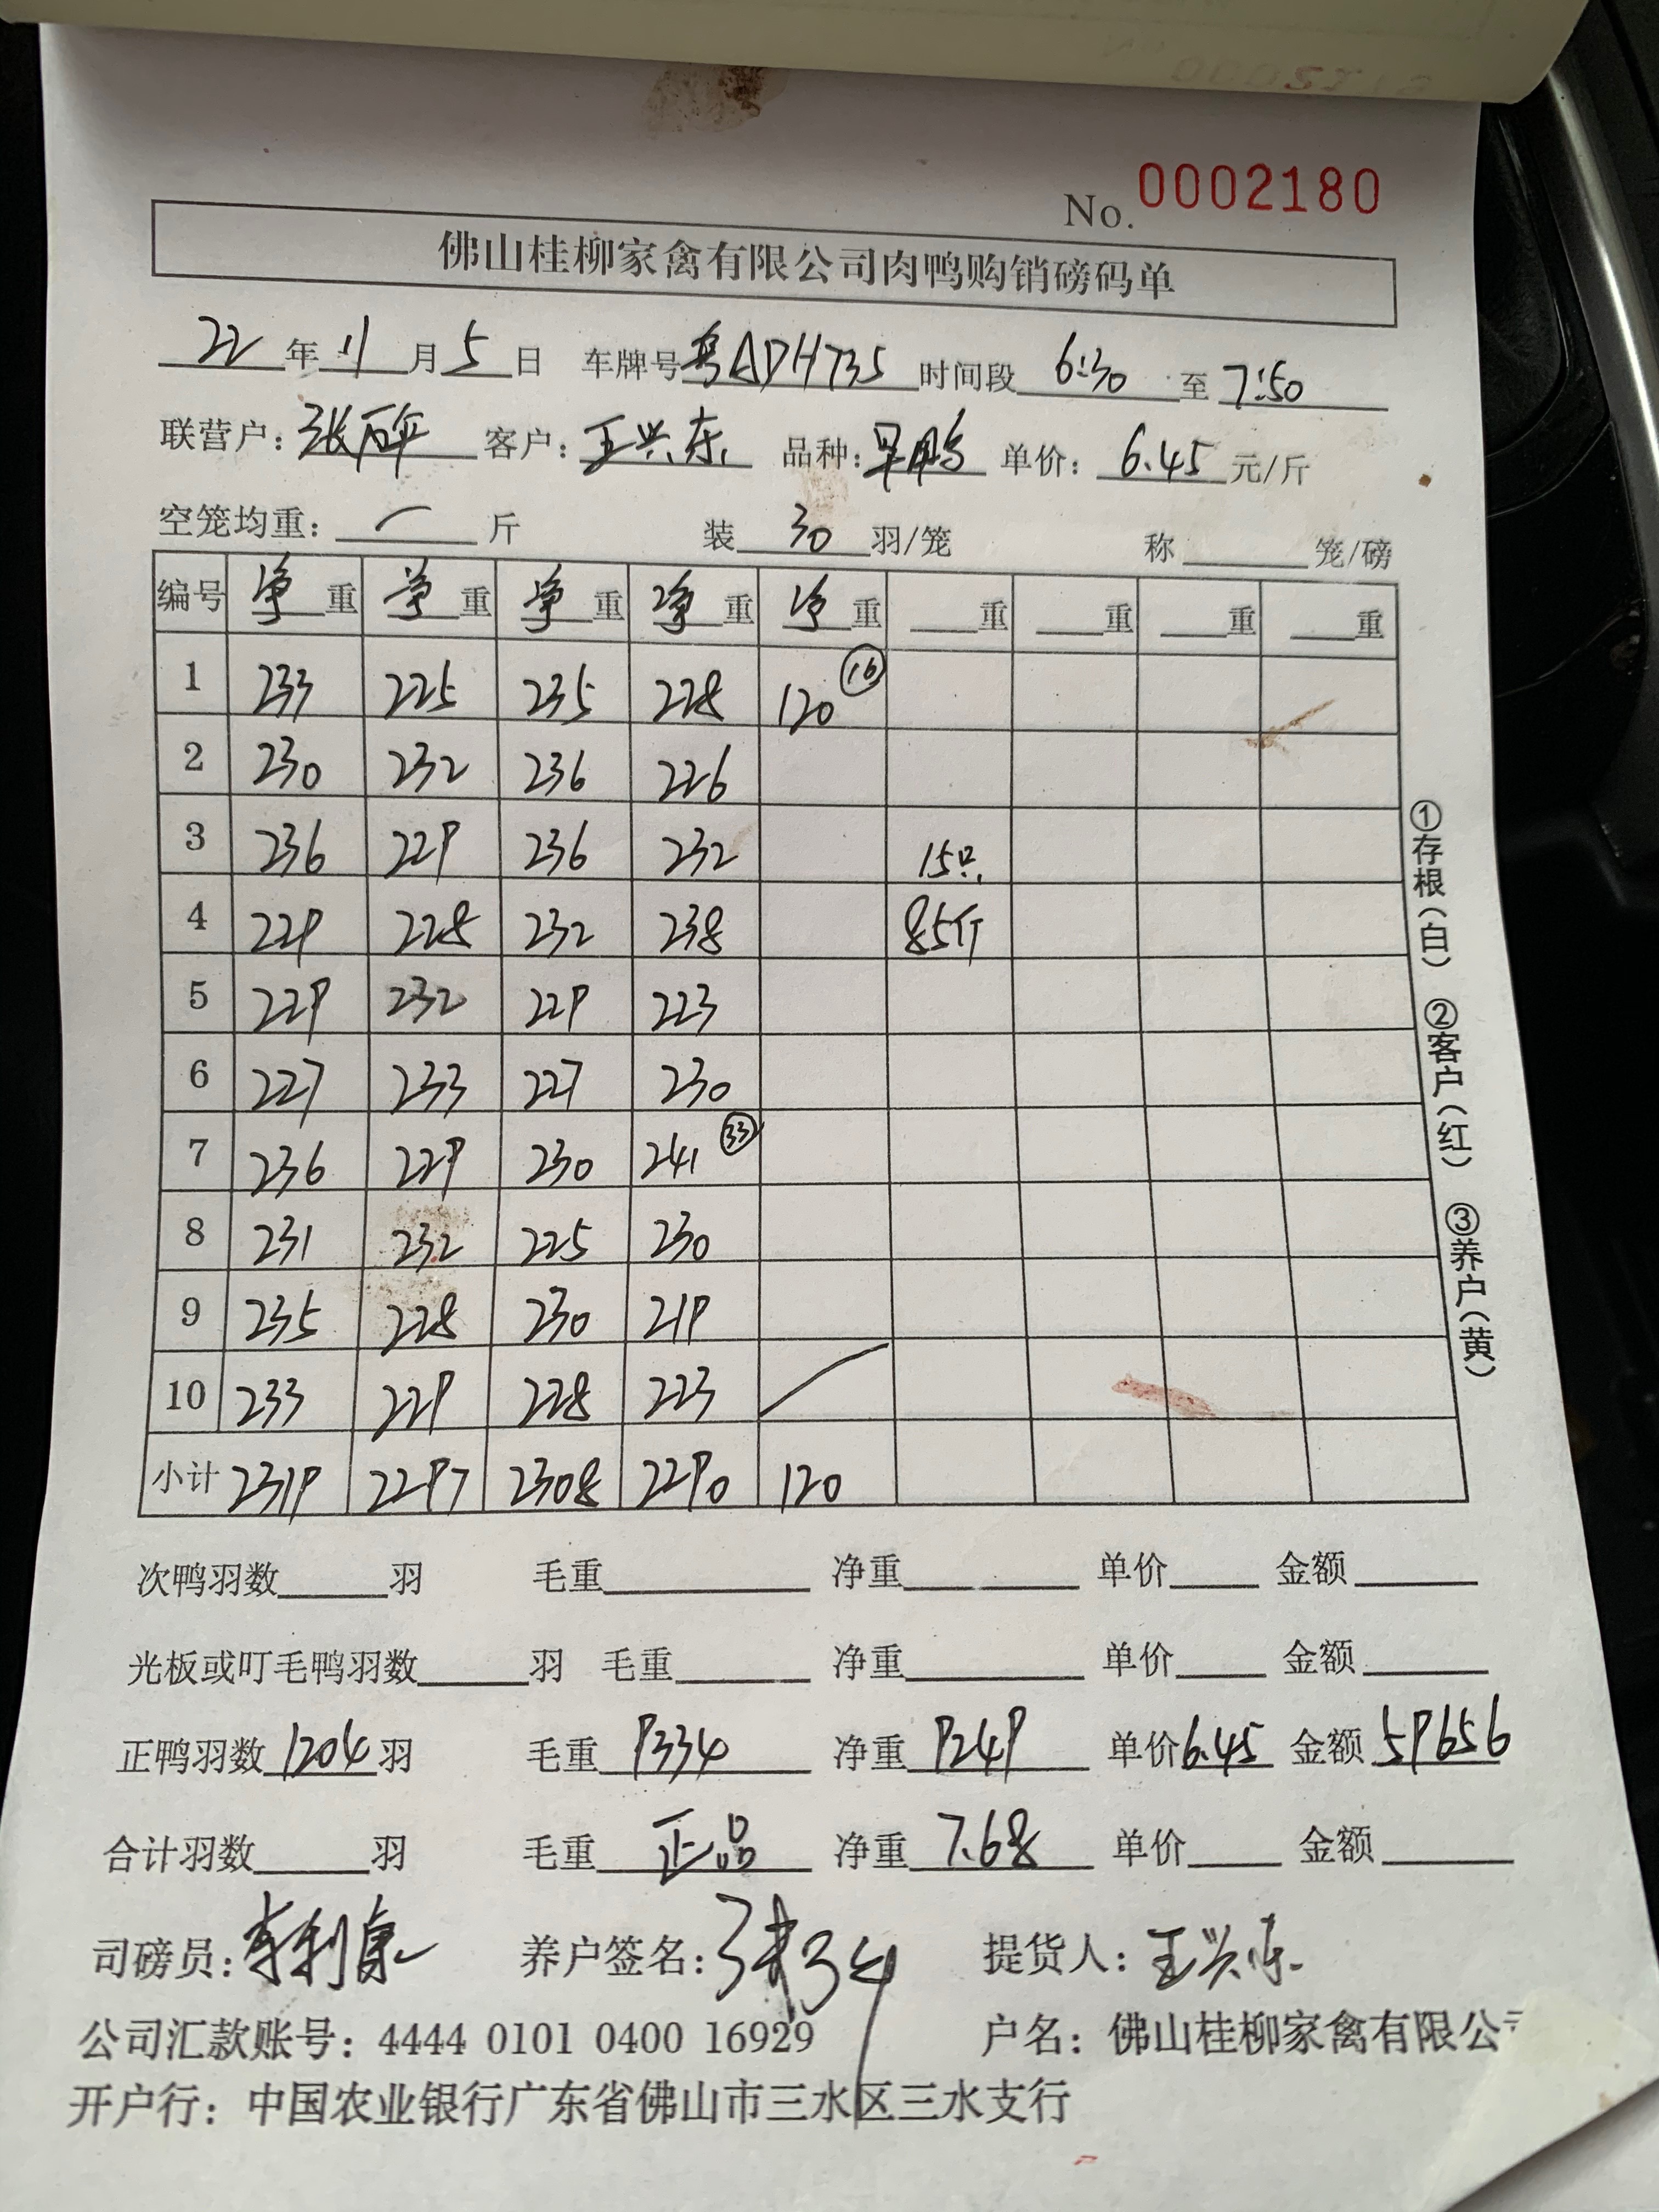 No. 0002180
佛山桂柳家禽有限公司肉鸭购销磅码单
22 年 11 月 5 日 车牌号 粤ADH735 时间段 6:30 至 7:50
联营户: 张 客户: 王兴东 品种: 单价: 6.45 元/斤
空笼均重: 斤 装 30 羽/笼 称 笼/磅
编号 净重 净重 净重 净重 净重 重 重 重 重
1 233 225 235 228 120 ⑯
2 230 232 236 226
3 236 229 236 232 15只.
4 229 228 232 238 85斤
5 229 232 229 223
6 227 233 227 230
7 236 229 230 241 ㉝
8 231 232 225 230
9 235 228 230 219
10 233 229 228 223
小计 2319 2297 2308 2290 120
次鸭羽数 羽 毛重 净重 单价 金额
光板或叮毛鸭羽数 羽 毛重 净重 单价 金额
正鸭羽数 1204 羽 毛重 9334 净重 9249 单价 6.45 金额 59656
合计羽数 羽 毛重 正品 净重 7.68 单价 金额
司磅员: 养户签名: 提货人: 王兴东
公司汇款账号: 4444 0101 0400 16929 户名: 佛山桂柳家禽有限公
开户行: 中国农业银行广东省佛山市三水区三水支行
①存根(白) ②客户(红) ③养户(黄)